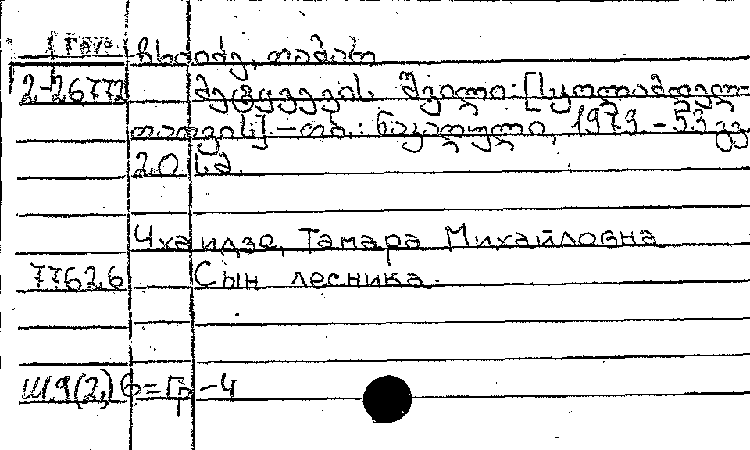 ჩხაიძე, თამარ
2-26772 მეტყევის შვილი: [სკოლამდელ-
თათვის]. - თბ.: ნაკადული, 1979. - 53 გვ.
20 სმ.
Чхаидзе, Тамара Михайловна
77626 Сын лесника.
Ш9(2)6=Гр -4